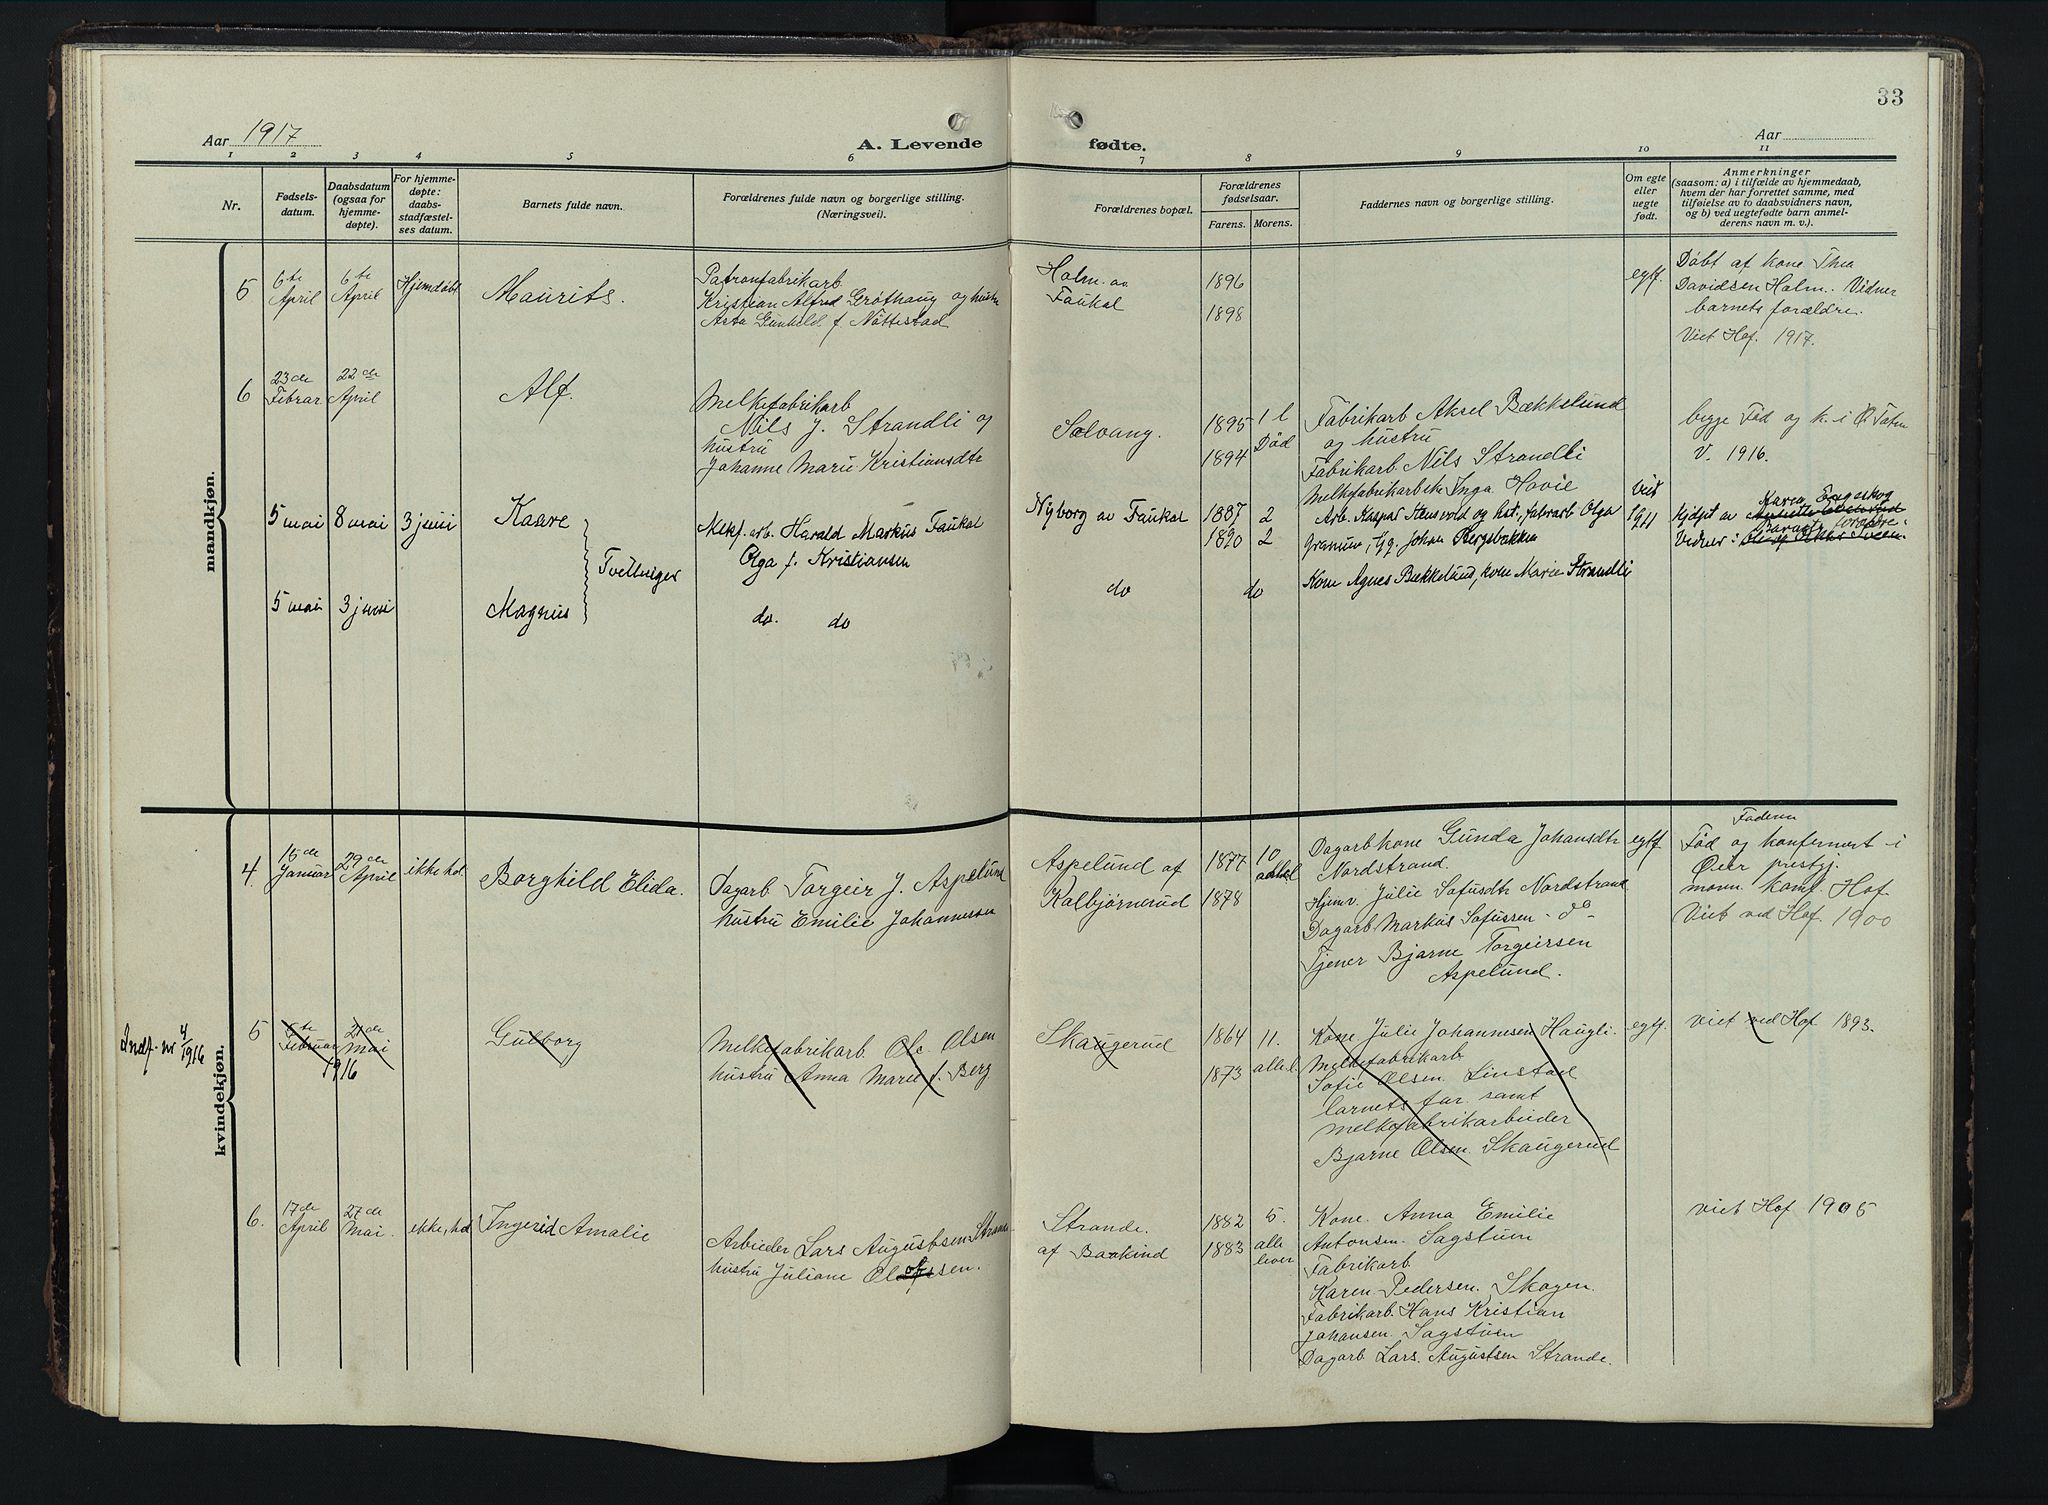 33
Aar 1917
A. Levende
fødte.
Aar
1 2 3 4 5 6 7 8 9 10 11
Nr.
Fødsels-
datum.
Daabsdatum
(ogsaa for
hjemme-
døpte).
For hjemme-
døpte:
daabs-
stadfæstel-
ses datum.
Barnets fulde navn.
Forældrenes fulde navn og borgerlige stilling.
(Næringsvei).
Forældrenes bopæl.
Forældrenes
fødselsaar.
Farens. Morens.
Faddernes navn og borgerlige stilling.
Om egte
eller
uegte
født.
Anmerkninger
(saasom: a) i tilfælde av hjemmedaab,
hvem der har forrettet samme, med
tilføielse av to daabsvidners navn,
og b) ved uegtefødte barn anmel-
derens navn m. v.).
mandkjøn.
5
6te
April
6te
April
Hjemdøbt
Maurits.
Patronfabrikarb
Kristian Alfred Grøthaug og hustru
Asta Gunhild f. Nøttestad
Holm av
Faukal
1896
1898
egtf.
Døbt af kone Thea
Davidsen Holm. Vidner
barnets forældre.
Viet Hof. 1917.
6
23de
Febrar
22de
April
Alf.
Melkefabrikarb
Nils J. Strandli og
hustru
Johanne Marie Kristiansdtr
Solvang.
1895
1894
1 l
Død
Fabrikarb Aksel Bækkelund
og hustru
Fabrikarb Nils Strandli
Melkefabrikarbeke Inga Hovie
begge Fød og k. i Ø Toten
V. 1916.
5 mai
8 mai
3 juni
Kaare
Tvillinger
Melkf. arb. Harald Markus Faukal
Olga f. Kristiansen
Nyborg av Faukal
1887 2
1890 2
Arb. Kaspar Stensvold og hst., fabrarb Olga
Granum, Gg. Johan Bergsbakken
Kone Agnes Bækkelund, kone Marie Strandli
Viet
1911
Karen Engeskog
Kjdpt av
Barnets forældre:
Vidner:
5 mai
3 juni
Magnus
do. do
do
do
kvindekjøn.
4.
15de
Januar
29de
April
ikke hd
Borghild Elida.
Dagarb Torgeir J. Aspelund
hustru Emilie Johannesen
Aspelund af
Kalbjørnerud
1877
1878
10
Dagarbkone Gunda Johansdtr
Nordstrand.
Hjemv. Julie Sofusdtr Nordstrand
Dagarb Markus Sofussen - do -
Tjener Bjarne Torgeirsen
Aspelund.
egtf
Faderen
Fød og konfermert i
Øier prestgj.
morn konf. Hof
Viet ved Hof 1900
Indf. nr 4/1916
5
5te
Februar
21de
Mai
1916
Gulborg
Melkefabrikarb. Ole Olsen
hustru Anna Marie f. Berg
Skaugerud
1864
1873
11.
alle l.
Kone Julie Johannesen Haugli.
Melkefabrikarb
Sofie Olsen. Linstad
barnets far. samt
melkefabrikarbeider
Bjarne Olsen. Skaugerud
egtf.
viet ved Hof 1893.
6.
17de
April
27de
Mai.
ikke, hd
Ingerid Amalie
Arbieder Lars Augustsen Strande
hustru Juliane Olofssen.
Strande.
af Baukind
1882
1883
5.
alle
lever
Kone. Anna Emilie
Antonsen. Sagstuen
Fabrikarb.
Karen Pedersen. Skogen.
Fabrikarb. Hans Kristian
Johansen. Sagstuen
Dagarb Lars. Augustsen Strande.
viet Hof 1905